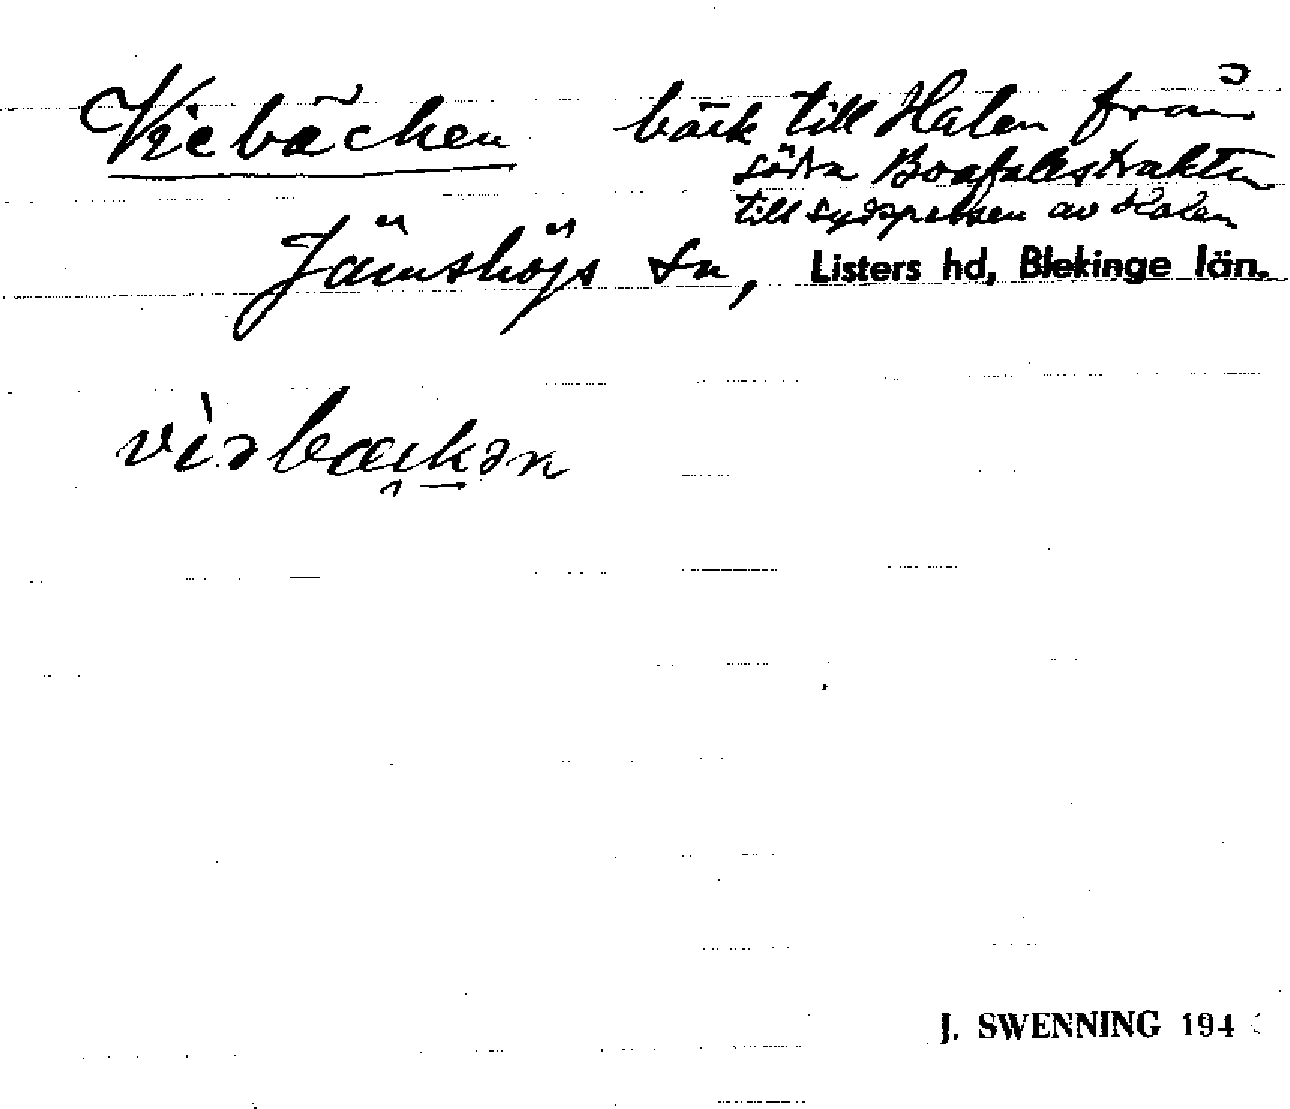 Viebäcken bäck till Halen från
södra Boafallstrakten
till sydspetsen av Halen
Jämshögs sn, Listers hd, Blekinge län.
vìəbæckən
J. SWENNING 194